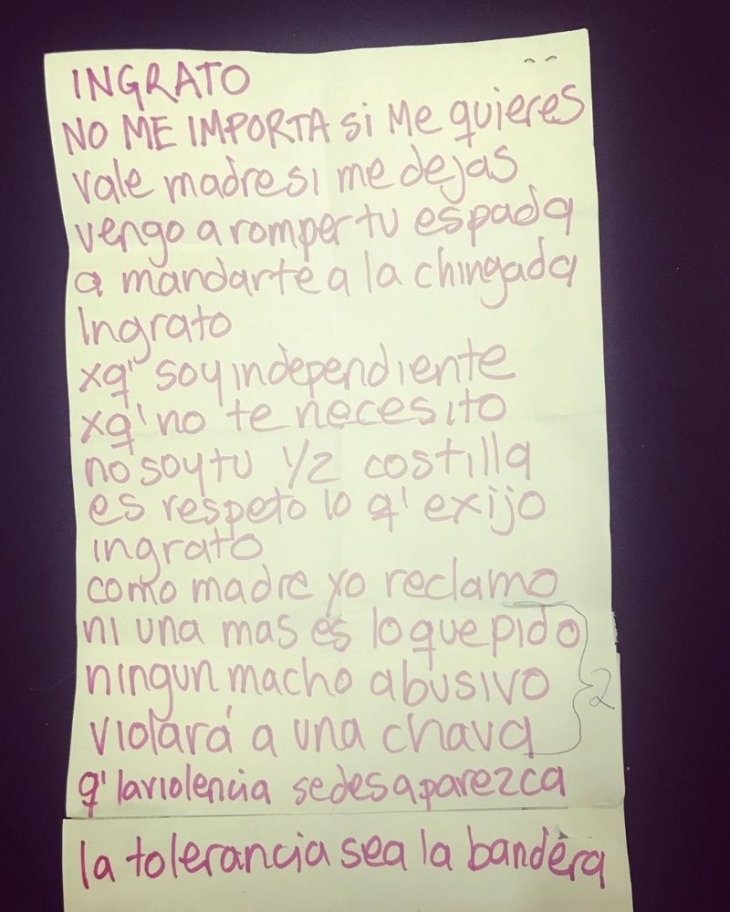 INGRATO
NO ME IMPORTA si Me quieres
vale madre si me dejas
vengo a romper tu espada
a mandarte a la chingada
Ingrato
xq' soy independiente
xq' no te necesito
no soy tu 1/2 costilla
es respeto lo q' exijo
ingrato
como madre yo reclamo
ni una mas es lo que pido
ningun macho abusivo
violará a una chava
2
q' la violencia se desaparezca
la tolerancia sea la bandera